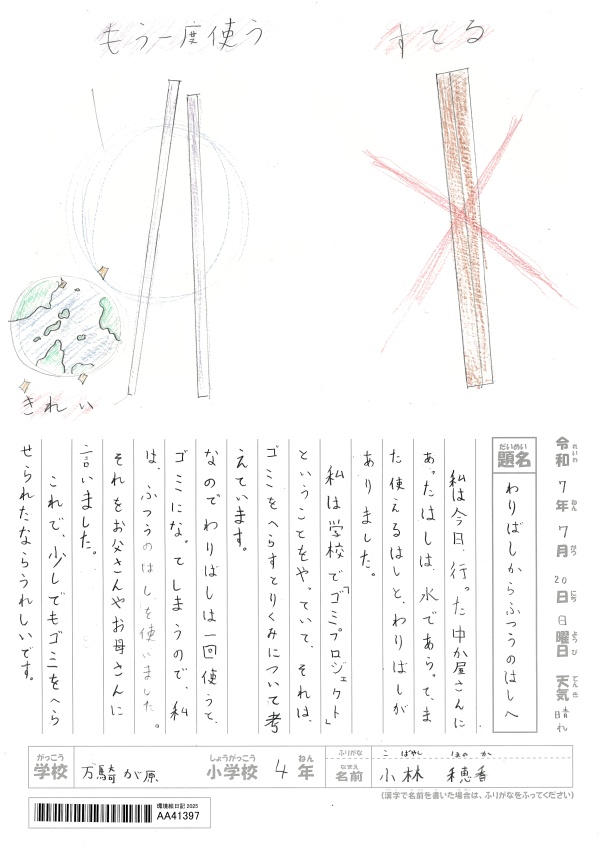 もう一度使う
すてる
きれい
令和7年7月20日日曜日 天気 晴れ
れいわ ねん がつ にち ようび てんき
だいめい
題名
わりばしからふつうのはしへ
私は今日、行った中か屋さんに
あったはしは、水であらって、ま
た使えるはしと、わりばしが
ありました。
私は学校で「ゴミプロジェクト」
ということをやっていて、それは、
ゴミをへらすとりくみについて考
えています。
なのでわりばしは一回使うと、
ゴミになってしまうので、私
は、ふつうのはしを使いました。
それをお父さんやお母さんに
言いました。
これで、少しでもゴミをへら
せられたならうれしいです。
がっこう しょうがっこう ねん ふりがな こばやし ほのか
学校 万騎が原 小学校 4年 なまえ 名前 小林 穂香
(漢字で名前を書いた場合は、ふりがなをふってください)
環境絵日記 2025
AA41397